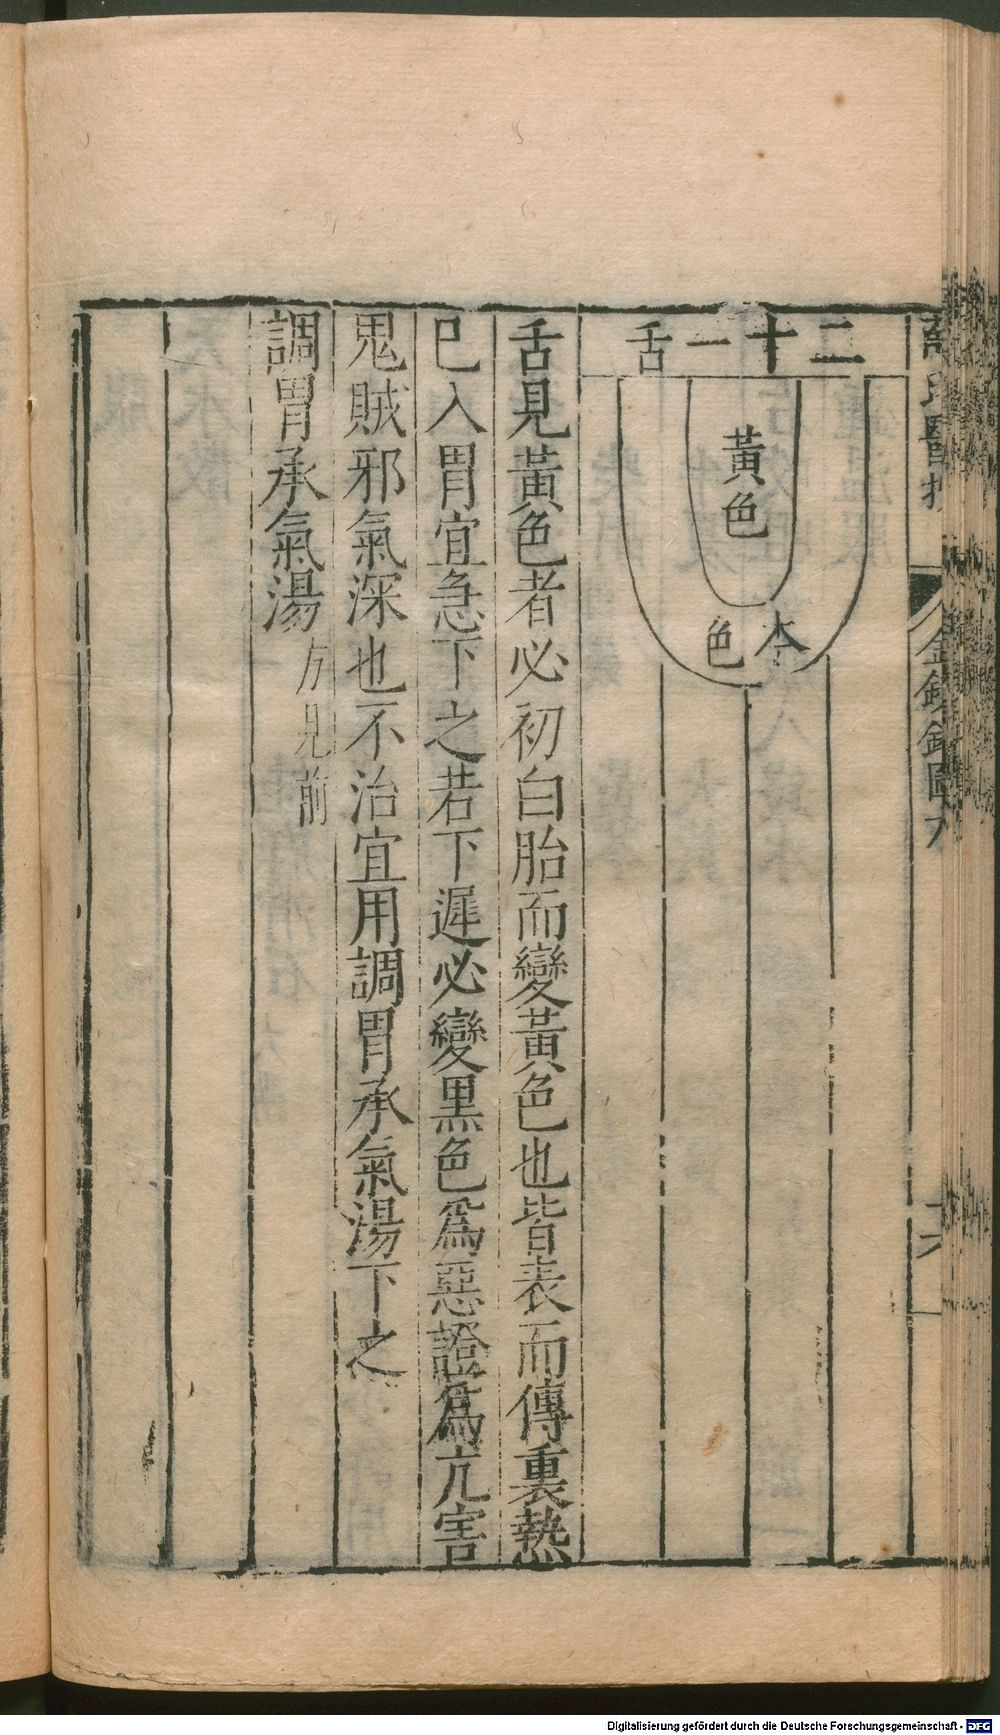 氏醫
金鏡錄圖
二十一舌
黃色
本色
舌見黃色者必初白胎而變黃色也皆表而傳裏熱
已入胃宜急下之若下遲必變黑色爲惡證爲亢害
鬼賊邪氣深也不治宜用調胃承氣湯下之
調胃承氣湯方見前
Digitalisierung gefördert durch die Deutsche Forschungsgemeinschaft - DFG